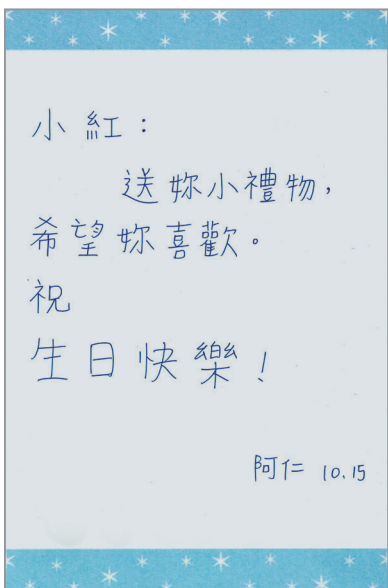 小紅：
送妳小禮物，
希望妳喜歡。
祝
生日快樂！
阿仁 10.15